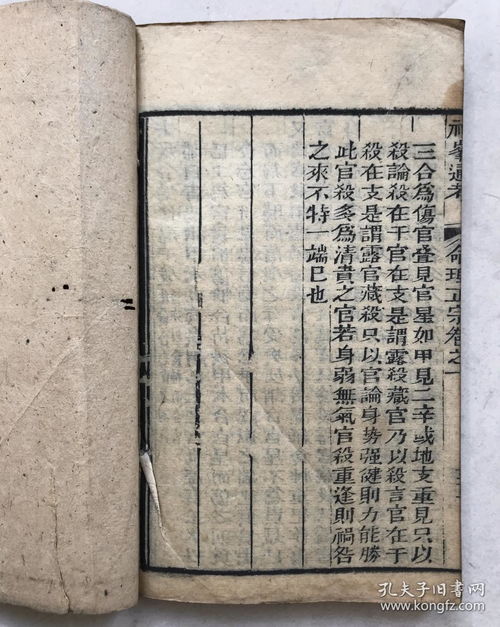 神峯通考 命理正宗智之
三合為傷官叠見官星如甲見二辛或地支重見只以
殺論殺在干官在支是謂露殺藏官乃以殺言官在于
殺在支是謂露官藏殺只以官論身勢强健則力能勝
此官殺多為清貴之官若身弱無氣官殺重逢則禍咎
之來不特一端已也
孔夫子旧书网
www.kongfz.com